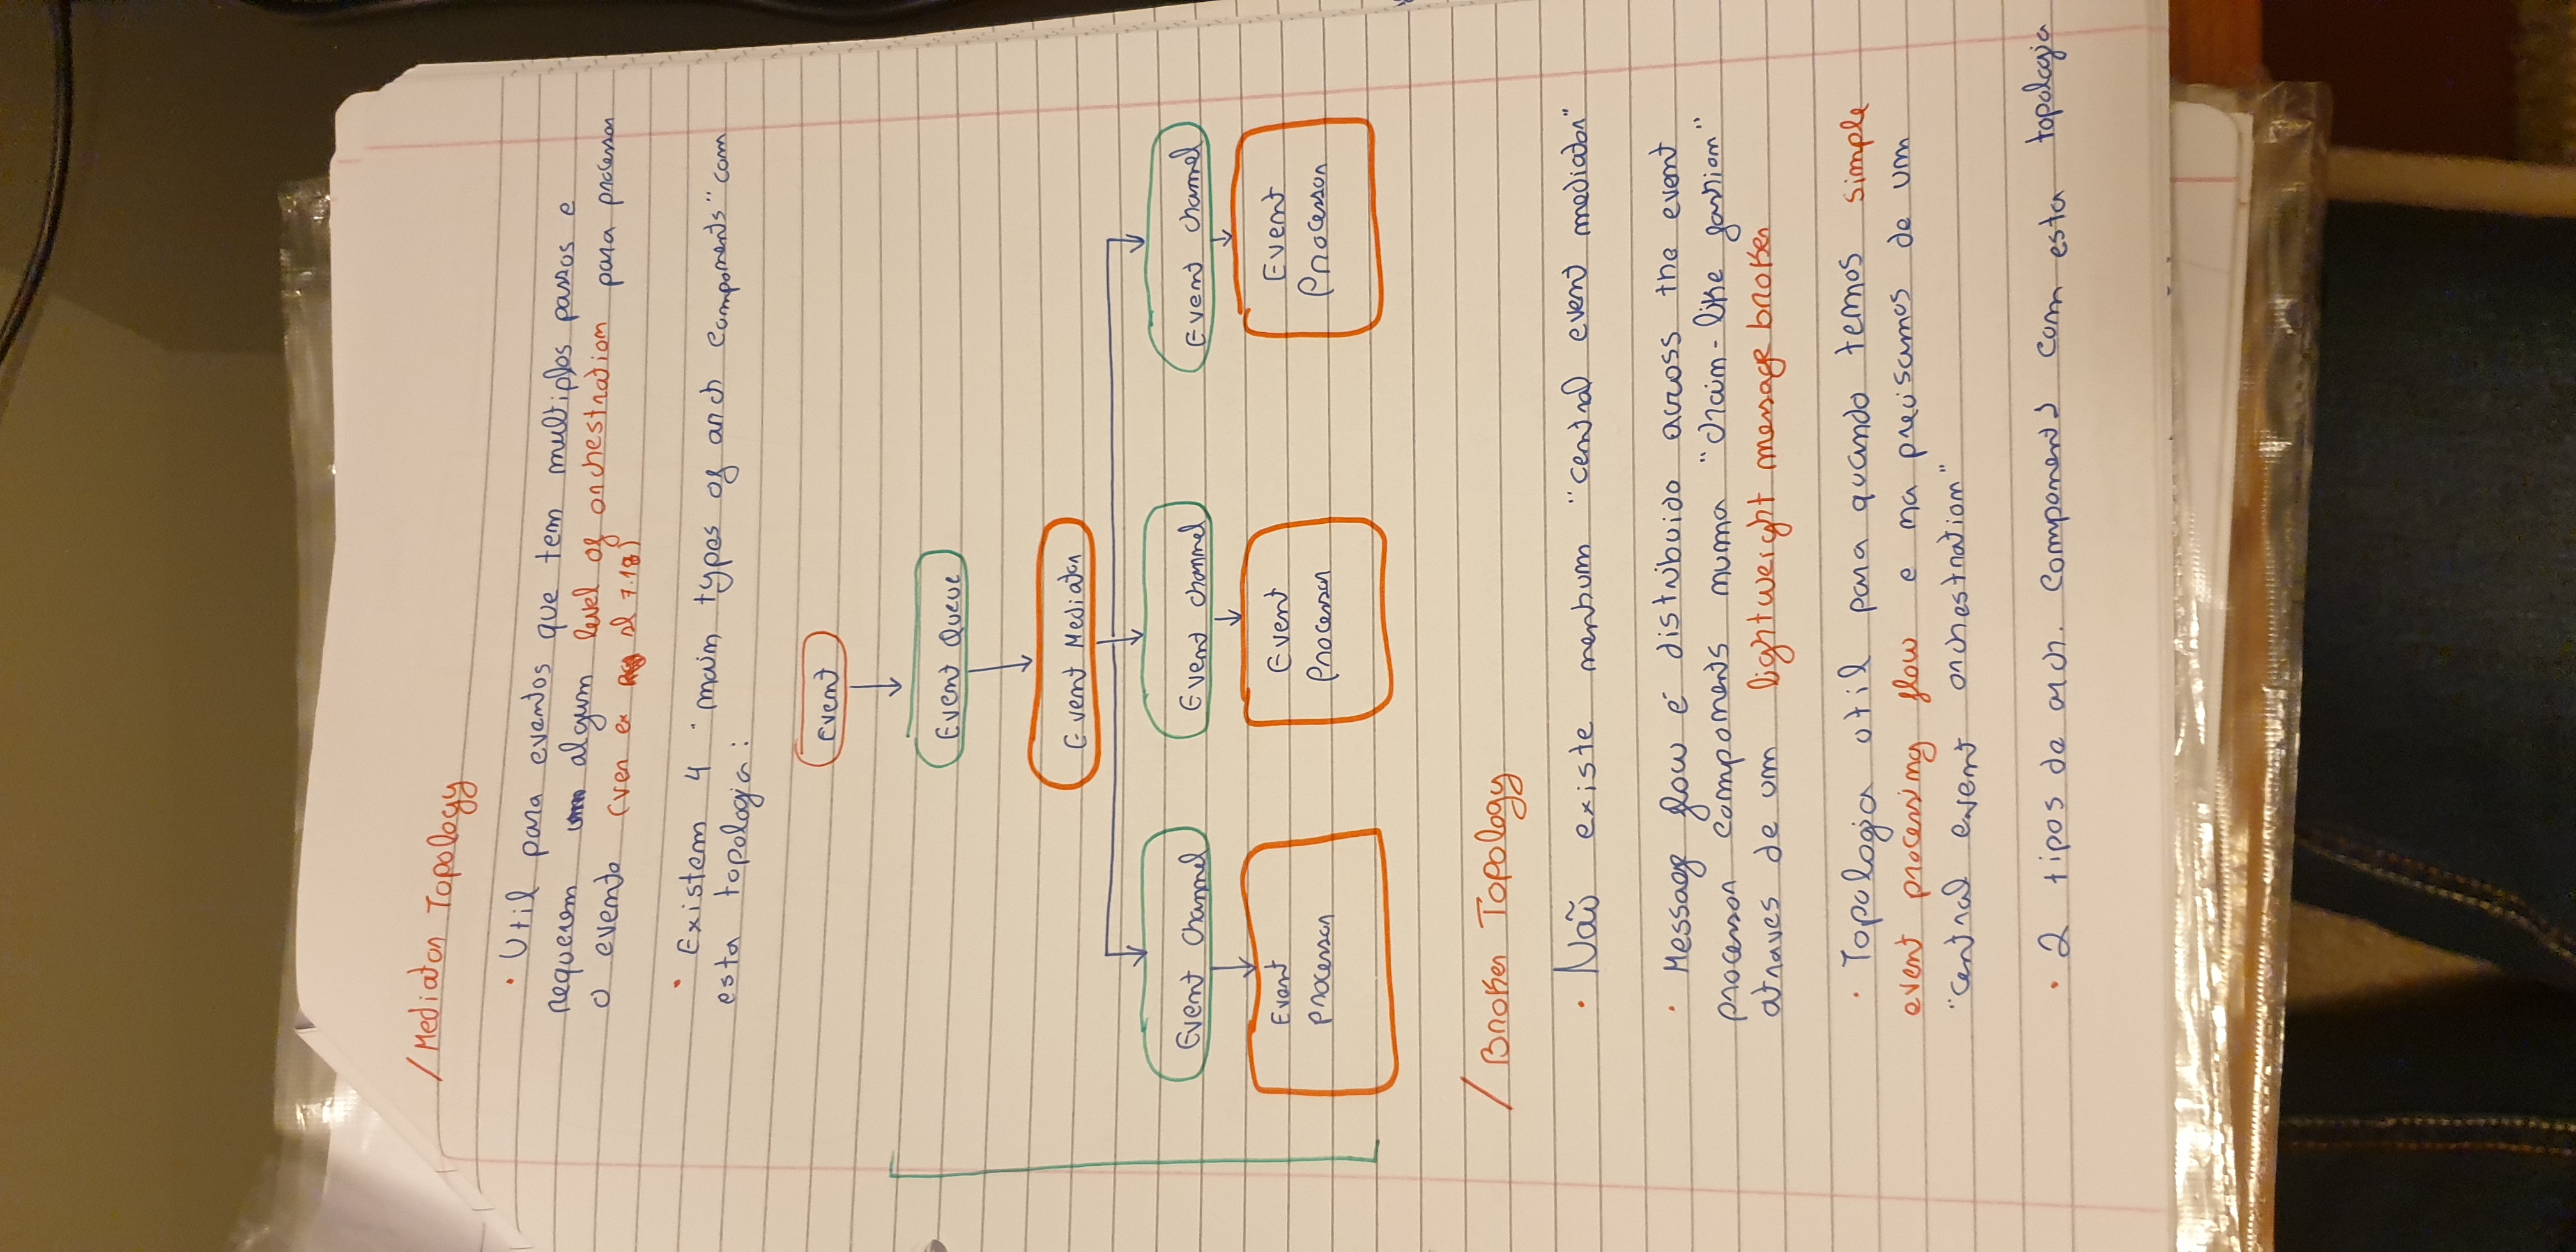 / Mediator Topology
• Util para eventos que tem multiplos passos e
requerem algum level of orchestration para processar
o evento (ver ex sl 7.18)
• Existem 4 "main types of arch components" com
esta topologia:
Event
Event Queue
Event Mediator
Event Channel Event channel Event channel
Event Event Event
Processor Processor Processor
/ Broker Topology
• Não existe nenhum "central event mediator"
• Message flow é distribuido across the event
processor components numa "chain-like fashion"
atraves de um lightweight message broker
• Topologia util para quando temos simple
event processing flow e na precisamos de um
"central event orchestration"
• 2 tipos de arch. components com esta topologia